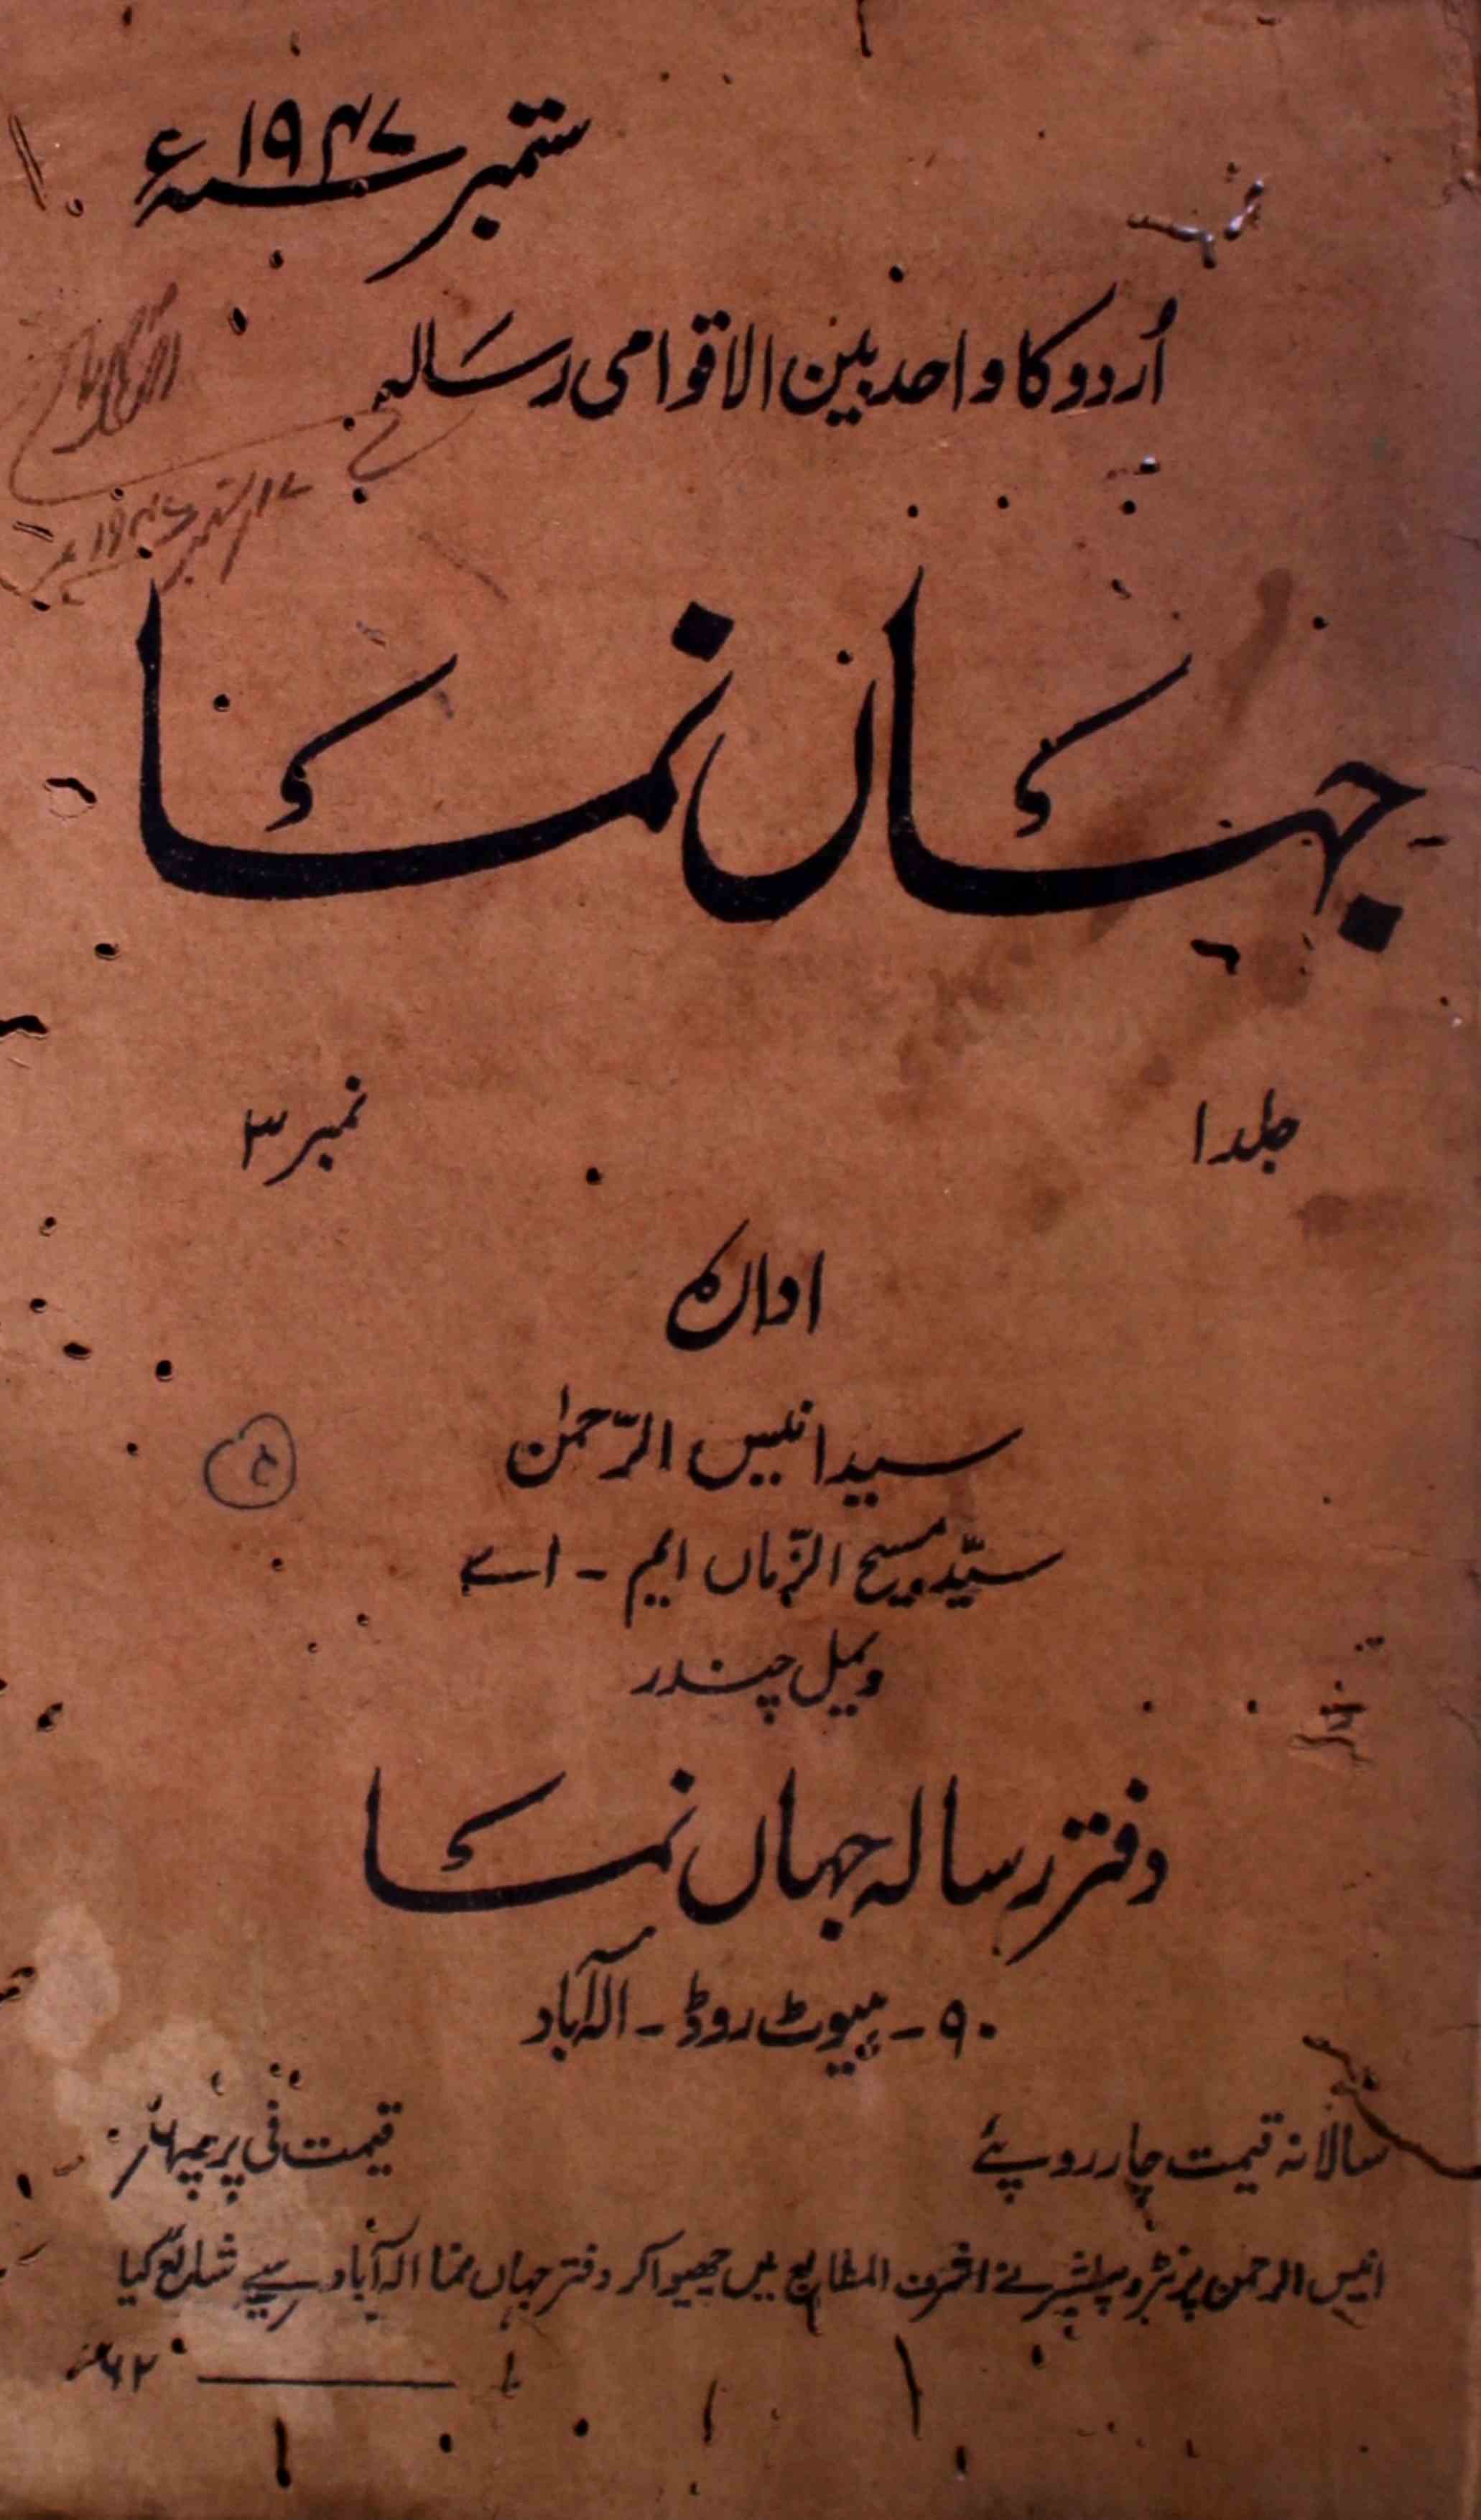 ستمبر ۱۹۴۷ء
اُردو کا واحد بین الاقوامی رسالہ
۱۷ ستمبر ۱۹۴۷ء
جہاں نما
جلد ۱
نمبر ۳
ادارہ
سید انیس الرّحمٰن
سیّد مسیح الزّماں ایم - اے
ویمل چندر
دفتر رسالہ جہاں نما
۹۰ - ہیوٹ روڈ - الہ آباد
سالانہ قیمت چار روپئے
قیمت فی پرچہ ۶ر
انیس الرحمن پرنٹر و پبلشر نے اشرف المطابع میں چھپوا کر دفتر جہاں نما الہ آباد سے شایع کیا